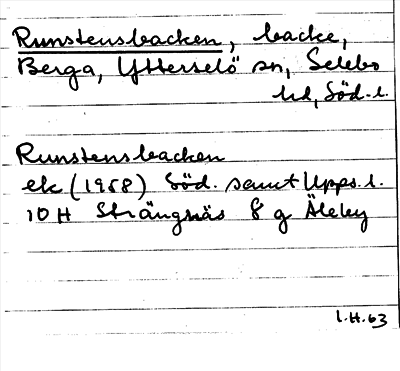 Runstensbacken, backe,
Berga, Ytterselö sn, Selebo
hd, Söd. l.
Runstensbacken
ek (1958) Söd. samt Upps. l.
10 H Strängnäs 8 g Äleby
I.H. 63